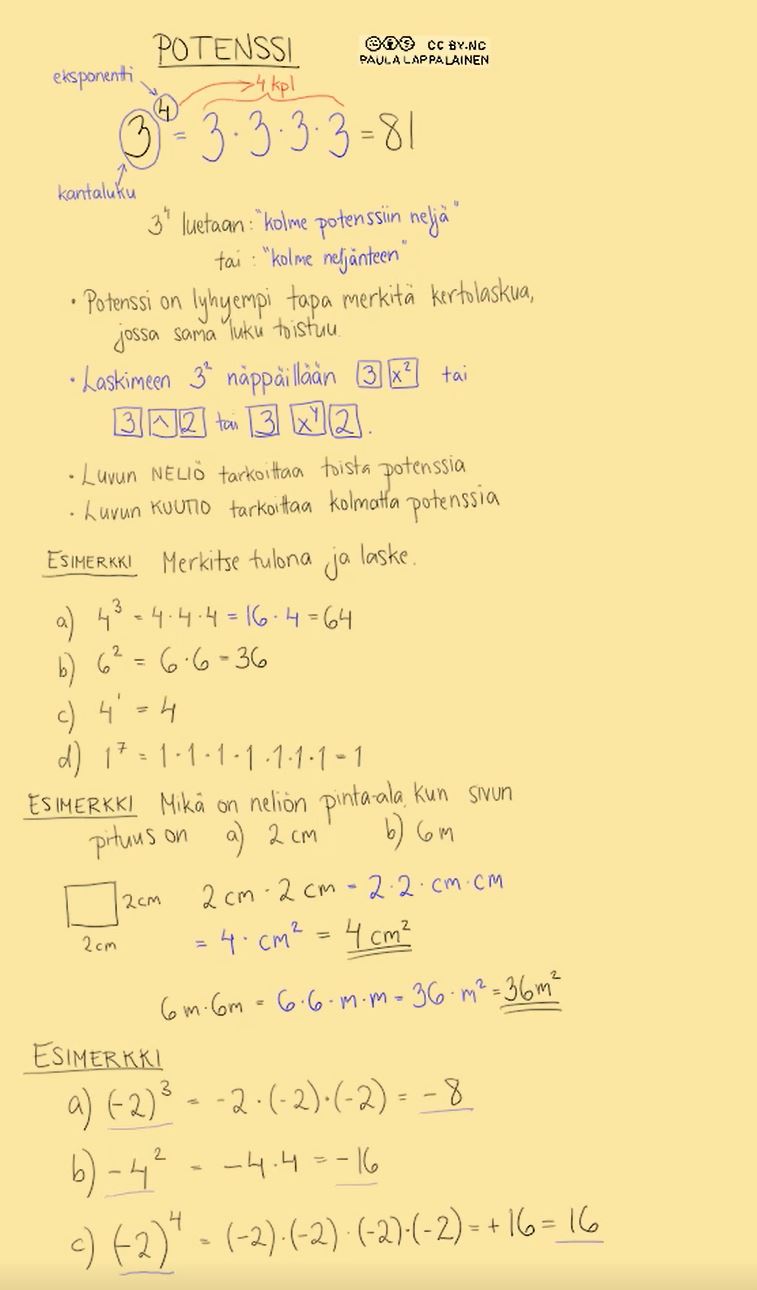 POTENSSI
CC BY-NC
PAULA LAPPALAINEN
eksponentti
4 kpl
3⁴ = 3 · 3 · 3 · 3 = 81
kantaluku
3⁴ luetaan: "kolme potenssiin neljä"
tai : "kolme neljänteen"
• Potenssi on lyhyempi tapa merkitä kertolaskua,
jossa sama luku toistuu.
• Laskimeen 3² näppäillään 3 x² tai
3 ^ 2 tai 3 xʸ 2.
• Luvun NELIÖ tarkoittaa toista potenssia
• Luvun KUUTIO tarkoittaa kolmatta potenssia
ESIMERKKI Merkitse tulona ja laske.
a) 4³ = 4 · 4 · 4 = 16 · 4 = 64
b) 6² = 6 · 6 = 36
c) 4¹ = 4
d) 1⁷ = 1 · 1 · 1 · 1 · 1 · 1 · 1 = 1
ESIMERKKI Mikä on neliön pinta-ala, kun sivun
pituus on a) 2 cm b) 6 m
2cm
2 cm · 2 cm = 2 · 2 · cm · cm
2cm
= 4 · cm² = 4 cm²
6 m · 6 m = 6 · 6 · m · m = 36 · m² = 36 m²
ESIMERKKI
a) (-2)³ = -2 · (-2) · (-2) = -8
b) -4² = -4 · 4 = -16
c) (-2)⁴ = (-2) · (-2) · (-2) · (-2) = +16 = 16